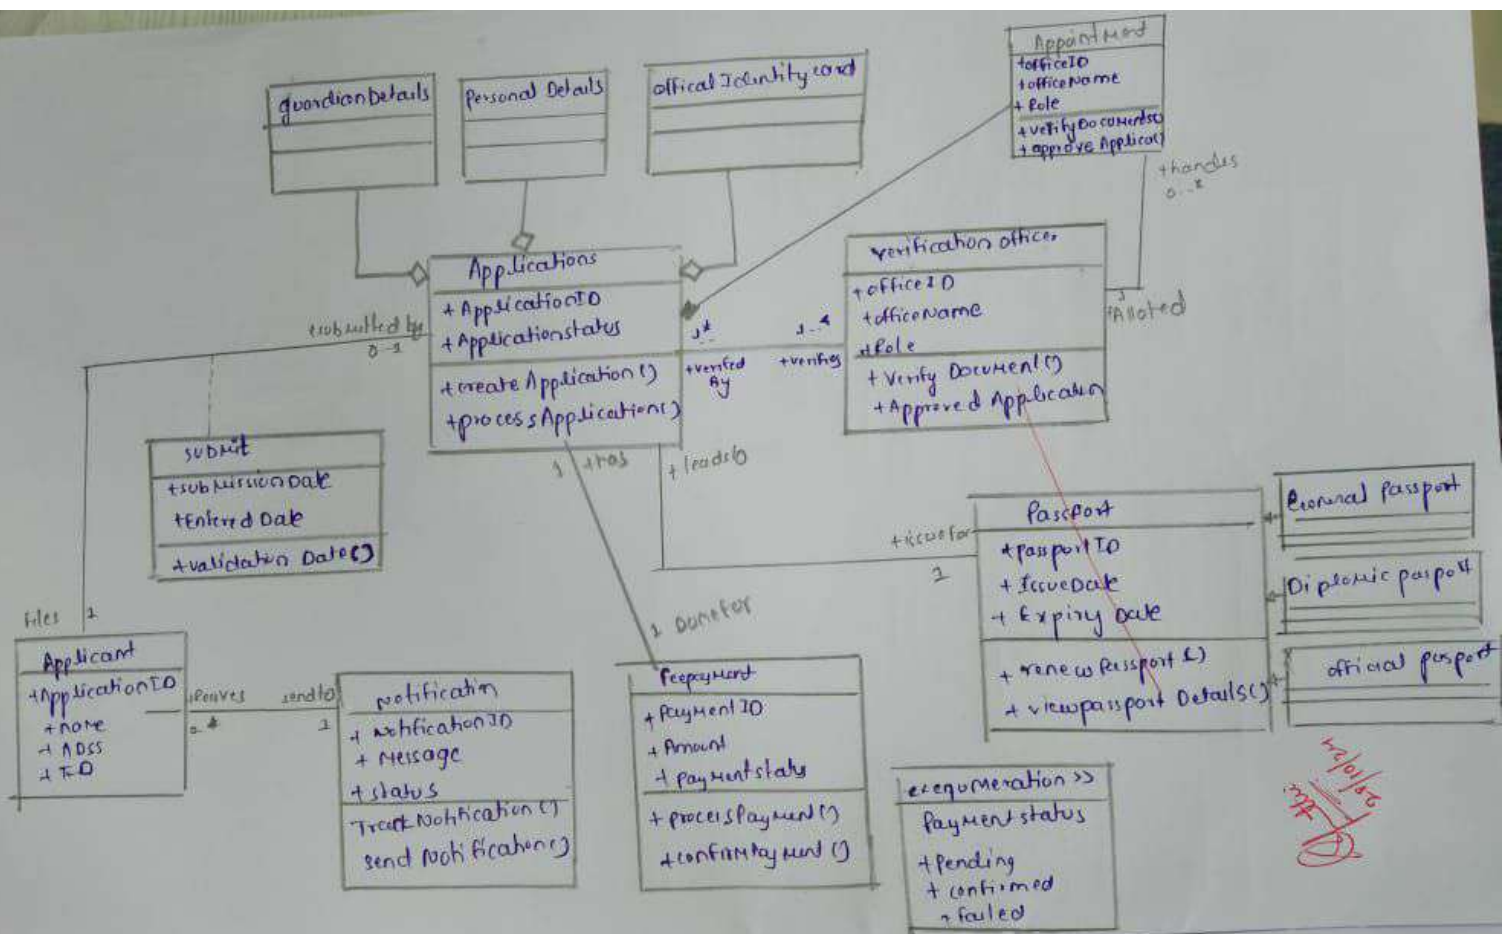 guardianDetails
Personal Details
offical Identity card
Appointment
+officeID
+officeName
+ Role
+verifyDocuments()
+ approve Applica()
+handles
0..*
Applications
+ ApplicationID
+ Applicationstatus
+create Application()
+processApplication()
+submitted by
0-1
1*
..
+verified
By
1..*
+verifies
verification officer
+officeID
+officeName
+Role
+ Verify Document()
+Approved Application
1
+Alloted
submit
+submissionDate
+Entered Date
+validation Date()
1
+has
+ leadsto
+issuefor
1
Passport
+passportID
+ IssueDate
+ Expiry Date
+ renewPassport()
+ viewpassport Details()
Diplomic pasport
official pasport
Files
1
Applicant
+ApplicationID
+name
+ ADSS
0..*
sendto
1
Notificatin
+ NotificationID
+ Message
+status
TrackNotification()
send Notification()
1
Donefor
feepayment
+PaymentID
+ Amount
+ paymentstatus
+ processPayment()
+confirmPayment()
Payment status
+pending
+ confirmed
+ failed
29/10/24